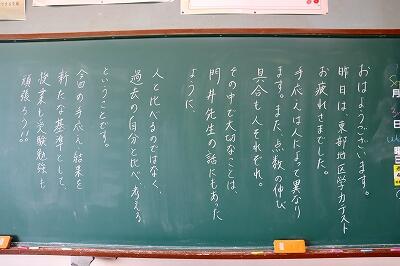 おはようございます。
昨日は、東部地区学力テスト
お疲れさまでした。
手応えは人によって異なり
ます。また、点数の伸び
具合も人それぞれ。
その中で大切なことは、
門井先生の話にもあった
ように、
人と比べるのではなく、
過去の自分と比べ、考える
ということです。
今回の手応え、結果を
新たな基準として、
授業も受験勉強も
頑張ろう!!
月
日
曜